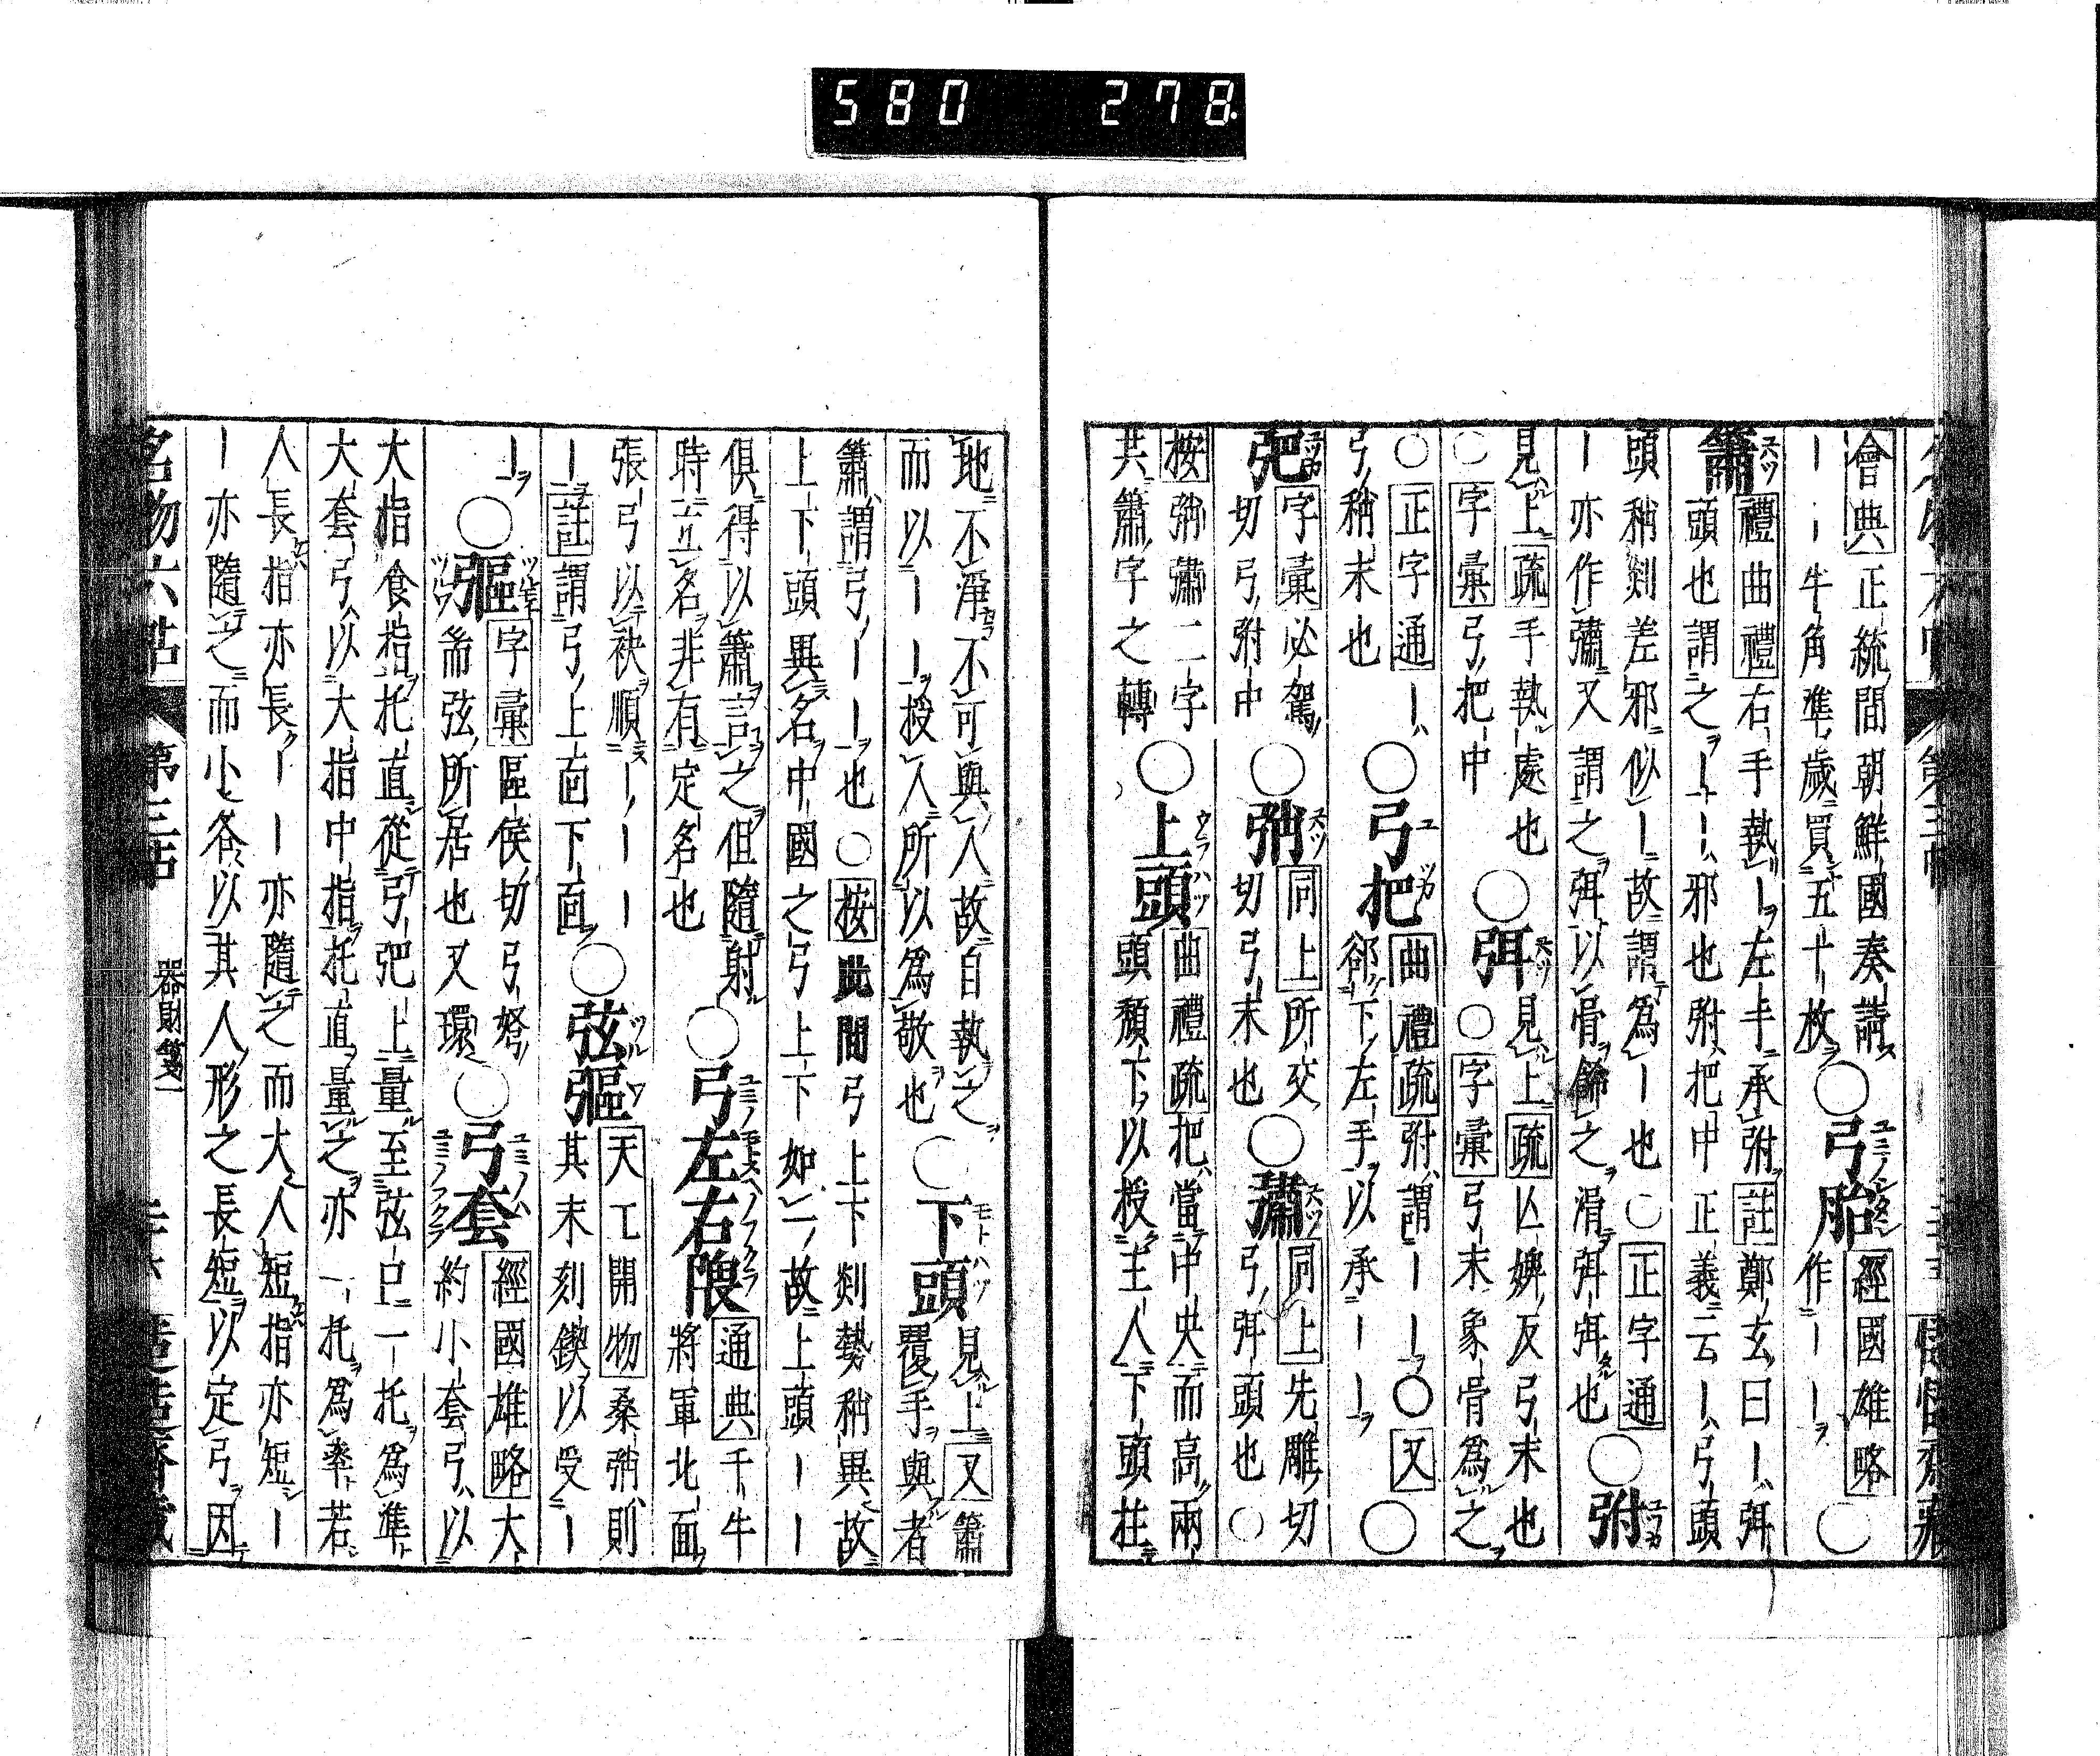 580 278
會典正統間朝鮮國奏請
一一牛角準歲買五十枚〇弓胎經國雄略〇
作一一
簫禮曲禮右手執一左手承弣註鄭玄曰一弭
頭也謂之一一邪也弣把中正義云一弓頭
頭稍剡差邪似一故謂爲一也〇正字通
一亦作彇又謂之弭以骨飾之滑弭弭也〇弣
見上疏手執處也〇弭見上疏亾婢反弓末也
〇字彙弓把中〇字彙弓末象骨爲之
〇正字通一〇弓把曲禮疏弣謂一一〇又〇
弓稍末也郤下左手以承一一
弝字彙必駕〇弰同上所交〇彇同上先雕切
切弓弣中切弓末也弓弭頭也〇
按弰彇二字〇上頭曲禮疏把當中央而高兩
共簫字之轉頭頹下以授主人下頭拄
地不淨不可與人故自執之〇下頭見上又簫
而以一一授人所以爲敬也覆手與者
簫謂弓一一也〇按此間弓上下剡勢稍異故
上下頭異名中國之弓上下如一故上頭一一
俱得以簫言之但隨射〇弓左右隈通典千牛
時立名非有定名也將軍北面
張弓以袂順一一一〇弦彄天工開物桑弰則
一註謂弓上面下面其末刻鍥以受一
一〇彄字彙區侯切弓弩〇弓套經國雄略大
耑弦所居也又環約小套弓以
大指食指托直從弓弝上量至弦口一托爲準
大套弓以大指中指托直量之亦一托爲率若
人長指亦長一一亦隨之而大人短指亦短一
一亦隨之而小各以其人形之長短以定弓因
名物六帖 第三帖 器財箋一